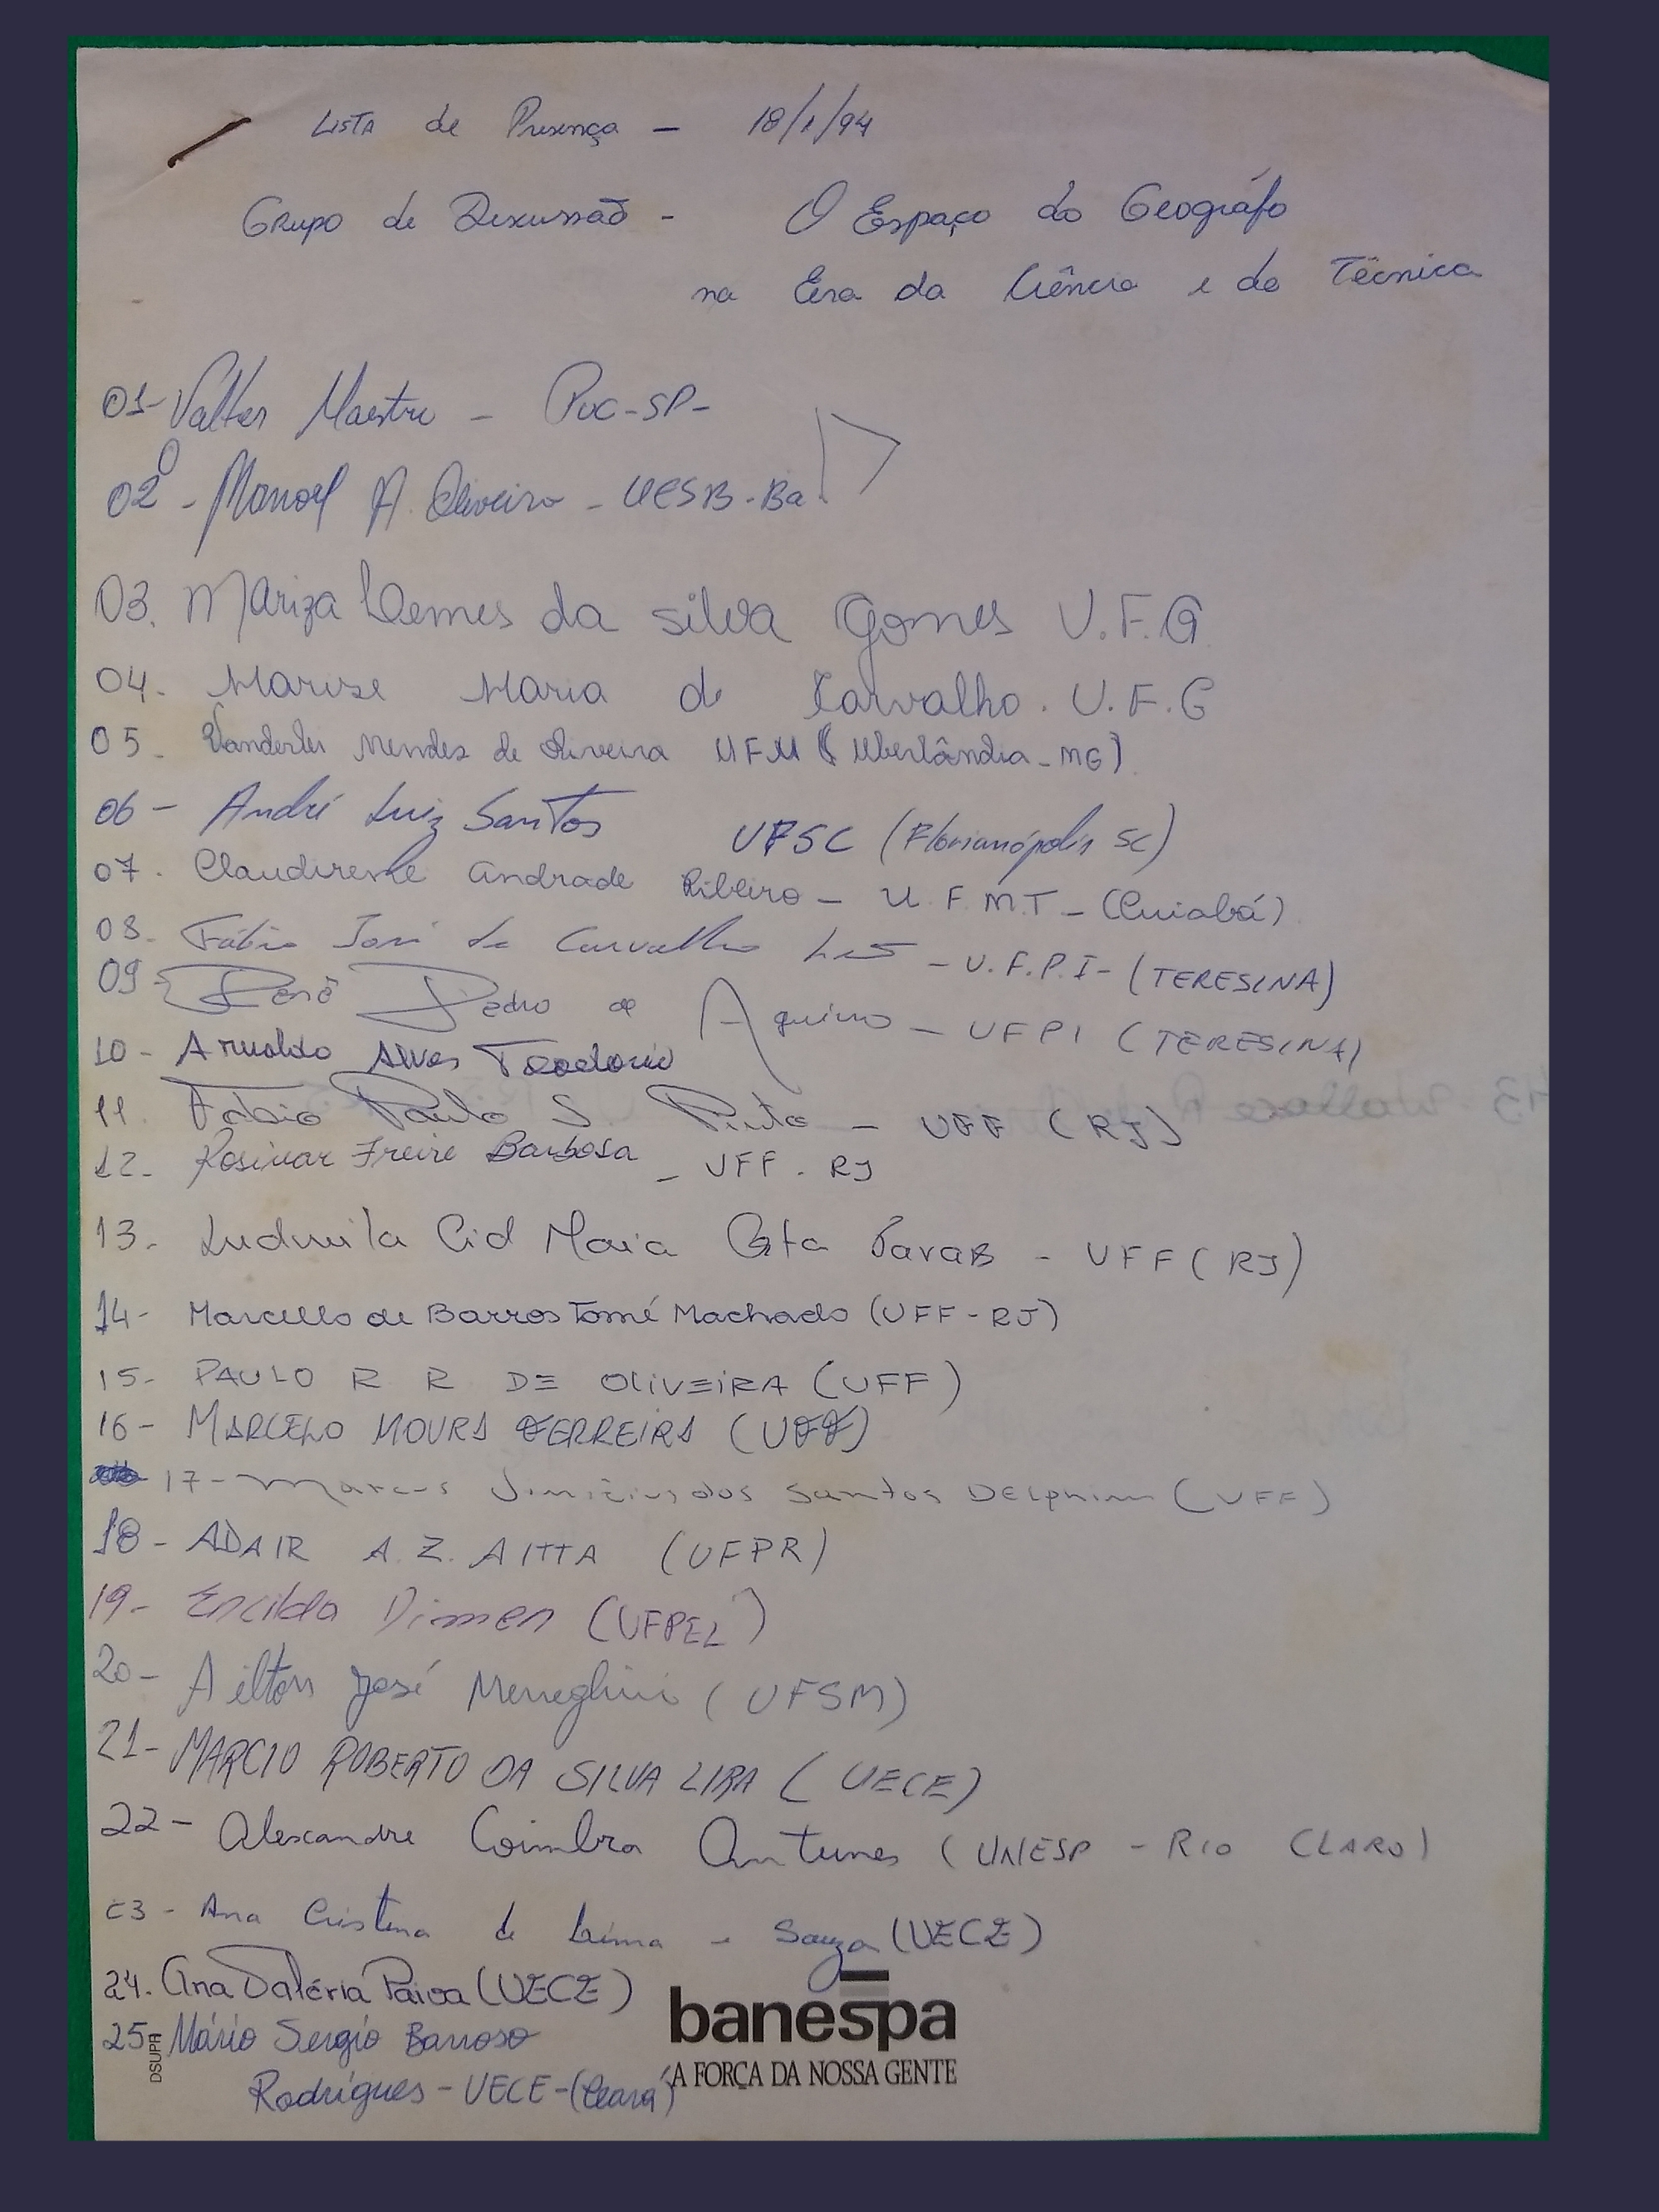 LISTA de Presença - 18/1/94
Grupo de Discussão - O Espaço do Geográfo
na Era da Ciência e da Técnica
01- Valter Maestro - PUC-SP-
02 - Manoel A. Oliveira - UESB-Ba.
03. Mariza Lemes da silva Gomes U.F.G
04. Marise Maria de Carvalho. U.F.G
05. Vanderlei Mendes de Oliveira UFU (Uberlândia - MG)
06 - André Luiz Santos UFSC (Florianópolis SC)
07. Claudirene Andrade Ribeiro - U.F.M.T - (Cuiabá)
08. Fábio José de Carvalho - U.F.P.I - (TERESINA)
09 - Pedro de Aquino - UFPI (TERESINA)
10 - Arnaldo Alves Teodorio
11. Fabio Paulo S. Pinto - UFF (RJ)
12. Rosimar Freire Barbosa - UFF. RJ
13. Ludmila Cid Maia Costa - UFF (RJ)
14- Marcello de Barros Tomé Machado (UFF-RJ)
15- PAULO R R DE OLIVEIRA (UFF)
16- MARCELO MOURA FERREIRA (UFF)
17- Marcus Vinicius dos Santos Delphim (UFF)
18- ADAIR A.Z. AITTA (UFPR)
19- (UFPEL)
20- Ailton José Meneghini (UFSM)
21- MARCIO ROBERTO DA SILVA LIRA (UECE)
22- Alexandre Coimbra Antunes (UNESP - RIO CLARO)
23- Ana Cristina de Lima e Souza (UECE)
24. Ana Valéria Paiva (UECE)
25- Mário Sergio Barroso
Rodrigues - UECE - (Ceará)
DSUPR
banespa
A FORÇA DA NOSSA GENTE